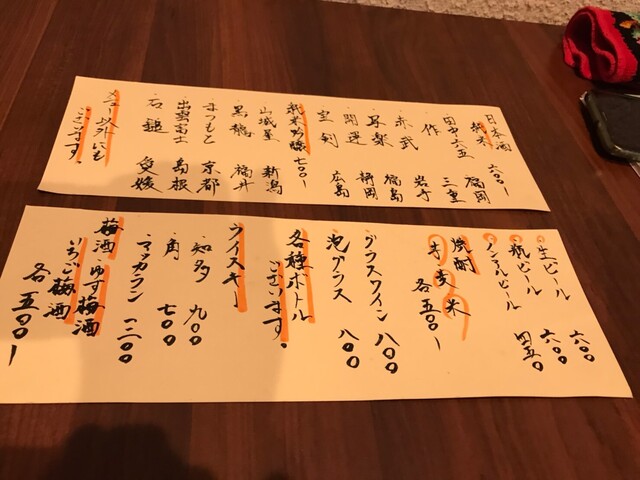 日本酒
純米 六〇〇ー
田中六五 福岡
作 三重
赤武 岩手
写楽 福島
開運 静岡
宝剣 広島
純米吟醸 七〇〇ー
山城屋 新潟
黒龍 福井
まつもと 京都
出雲富士 島根
石鎚 愛媛
メニュー以外にも
ございます。
生ビール 六〇〇
瓶ビール 六〇〇
ノンアルビール 四五〇
焼酎
芋 麦 米
各五〇〇ー
グラスワイン 八〇〇
泡グラス 八〇〇
各種ボトル
ございます。
ウイスキー
知多 九〇〇
角 七〇〇
マッカラン 一二〇〇
梅酒・ゆず梅酒
いちご梅酒
各五〇〇ー